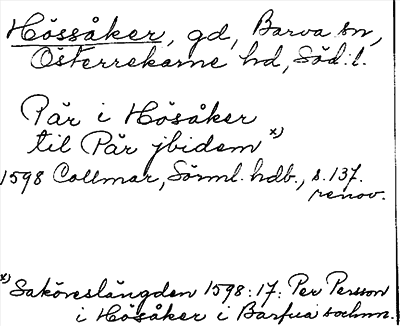 Hössåker, gd, Barva sn,
Österrekarne hd, Söd:l.
Pär i Hösåker
til Pär jbidem x)
1598 Collmar, Sörml. hdb., s. 137.
renov.
x) Saköreslängden 1598:17: Per Persson
i Hösåker i Barfua sochnn.